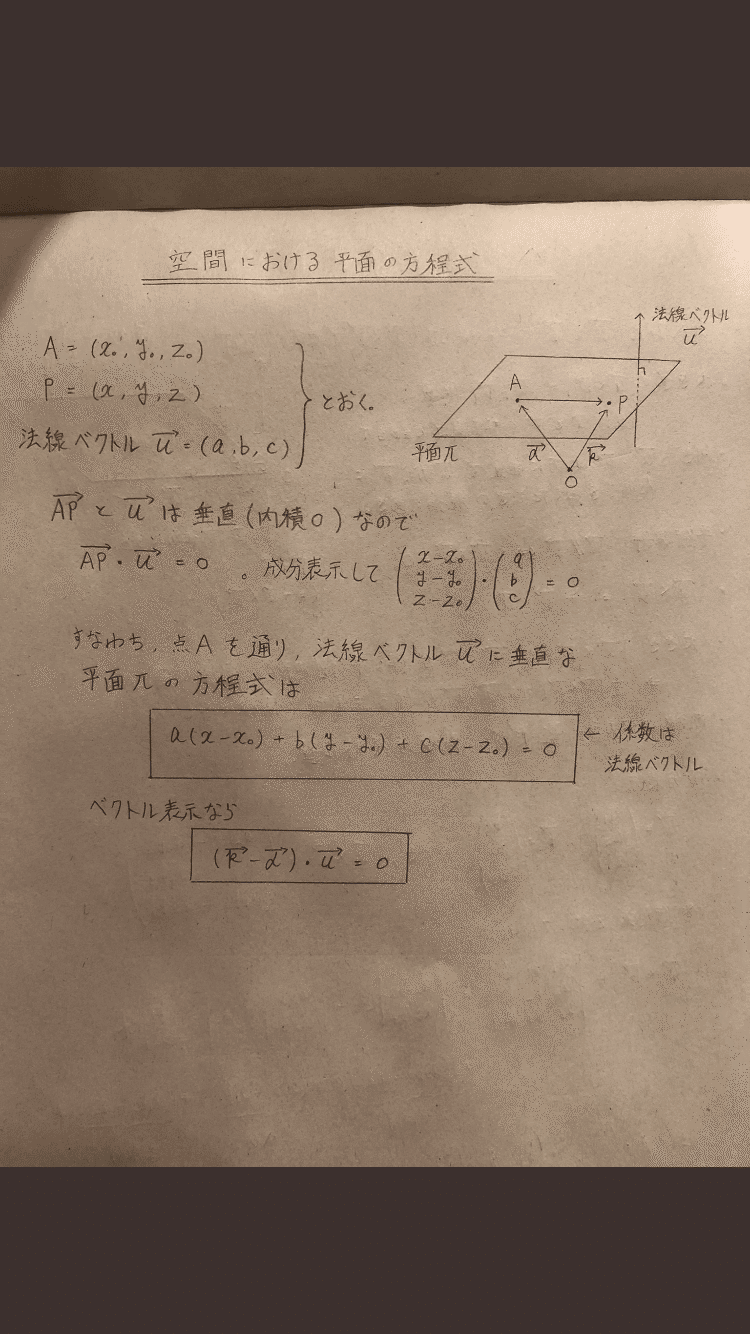 空間における平面の方程式
A = (x₀, y₀, z₀)
P = (x, y, z)
法線ベクトル u⃗ = (a, b, c)
とおく。
法線ベクトル
u⃗
A
P
平面π
a⃗
k⃗
O
AP⃗ と u⃗ は垂直(内積0)なので
AP⃗・u⃗ = 0 。成分表示して (x-x₀ y-y₀ z-z₀)・(a b c) = 0
すなわち, 点Aを通り, 法線ベクトル u⃗ に垂直な
平面πの方程式は
a(x-x₀) + b(y-y₀) + c(z-z₀) = 0
← 係数は
法線ベクトル
ベクトル表示なら
(k⃗-a⃗)・u⃗ = 0